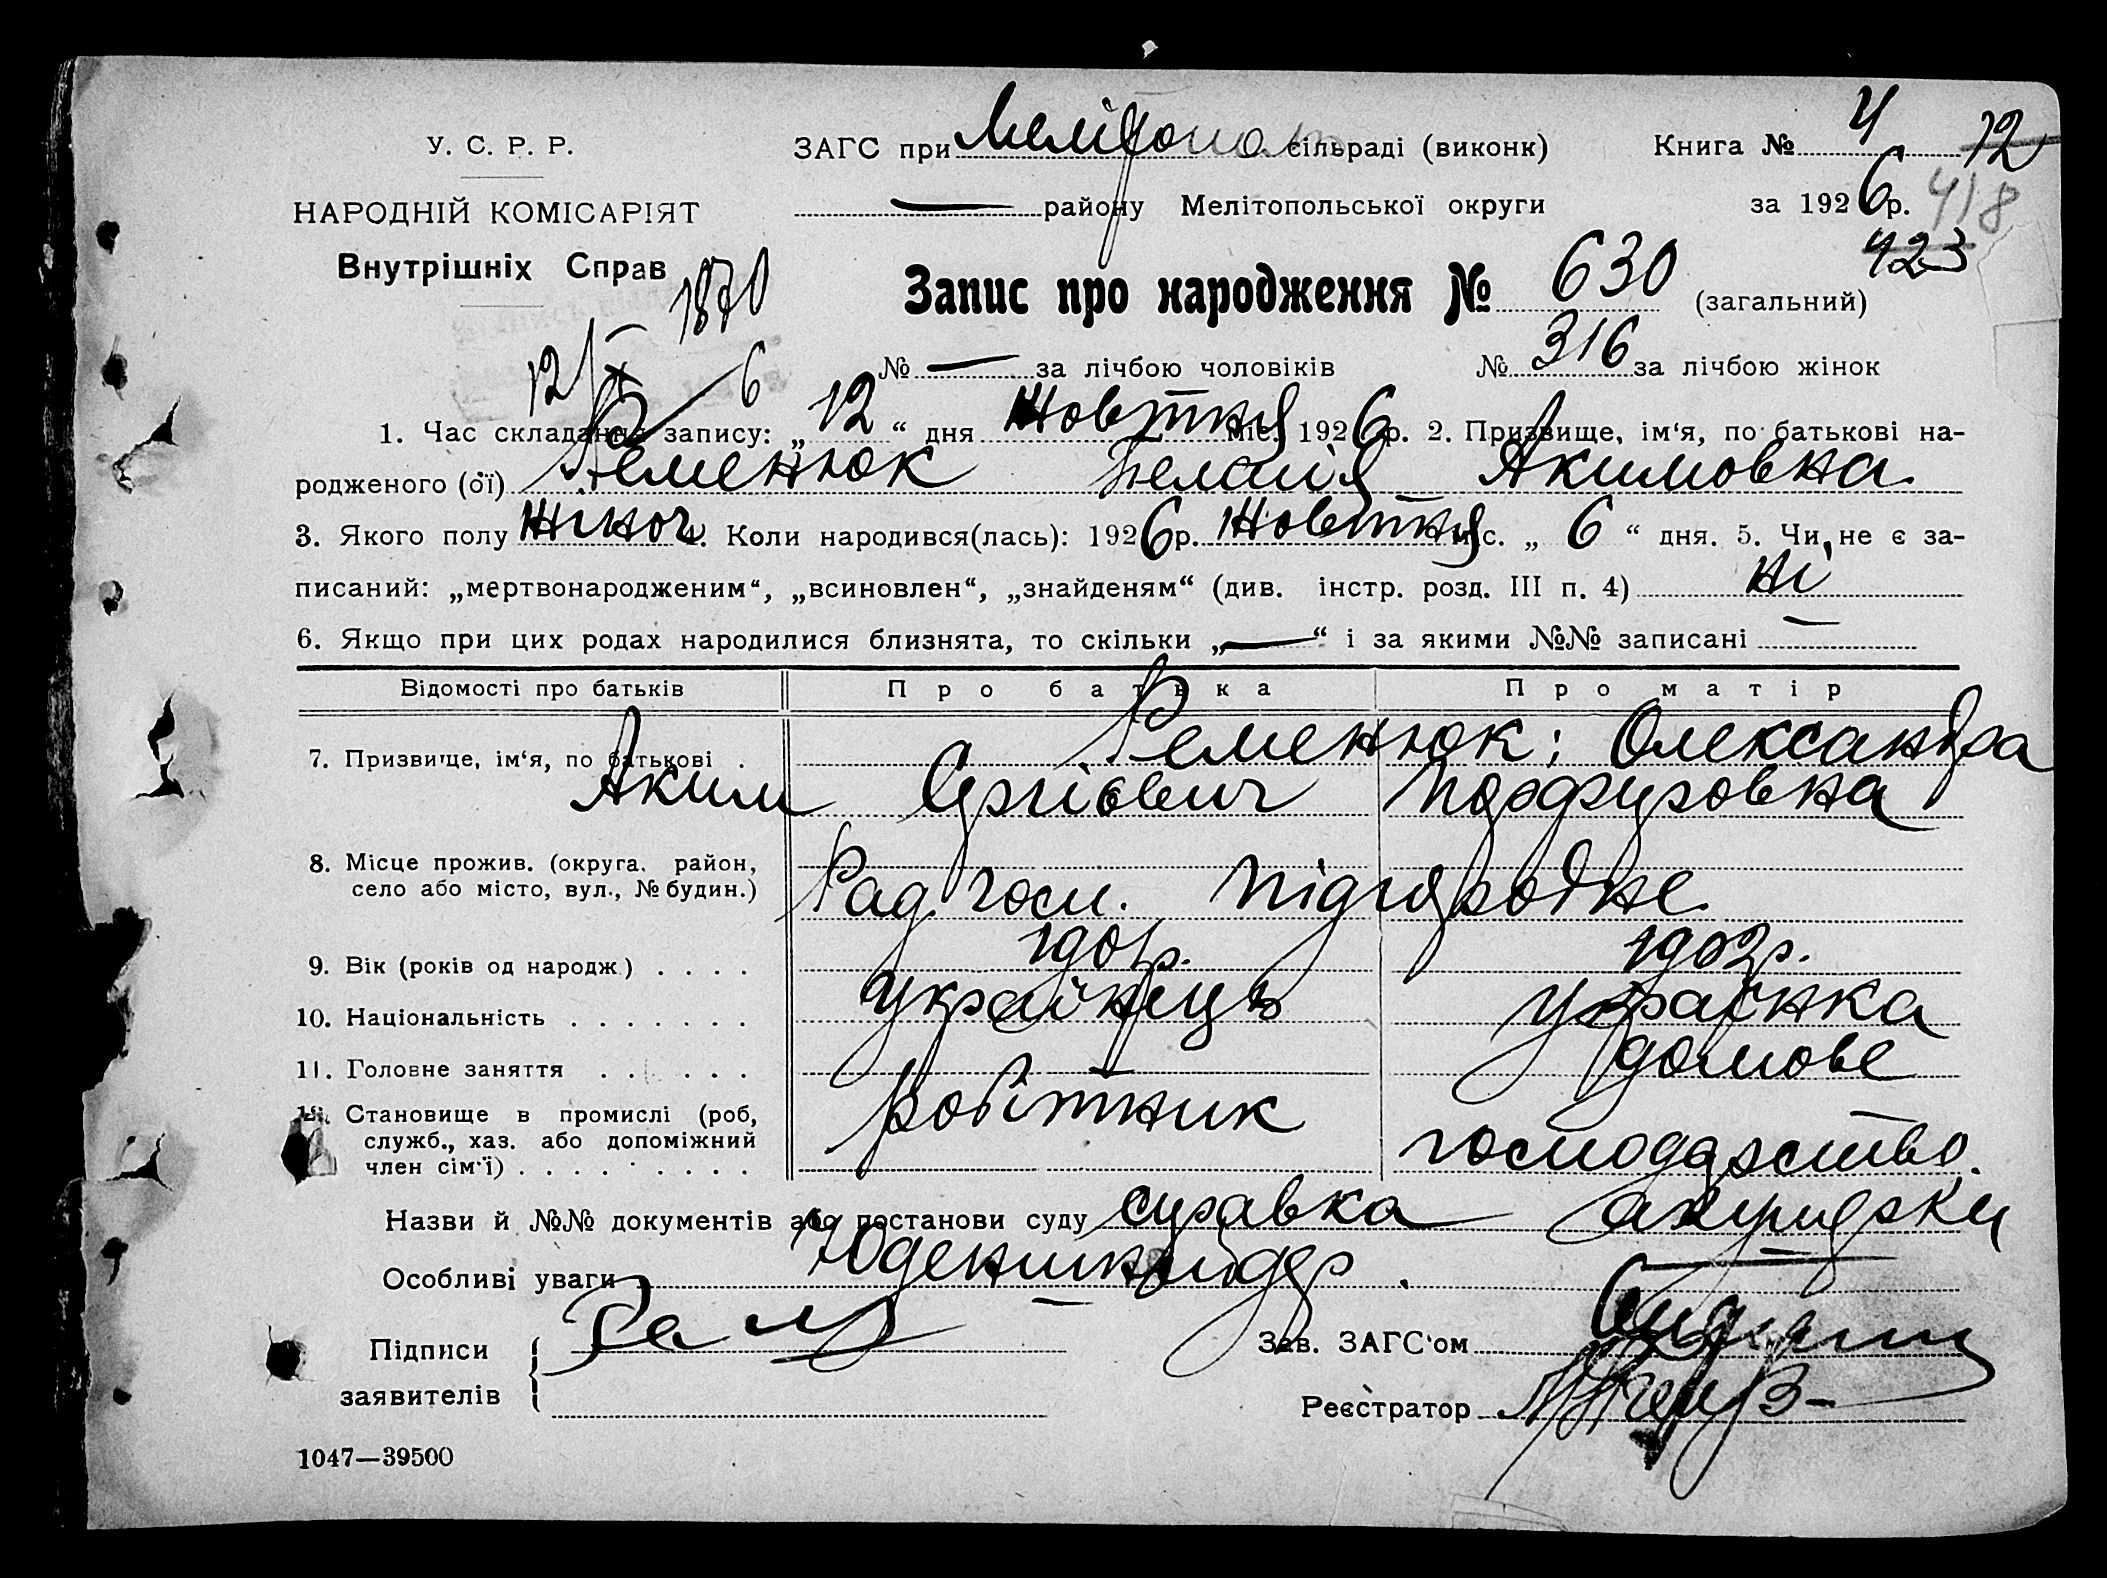 У. С. Р. Р.
НАРОДНІЙ КОМІСАРІЯТ
Внутрішніх Справ
ЗАГС при Мелітопол сільраді (виконк)
— району Мелітопольської округи
Книга № 4 12
за 1926 р. 418
423
Запис про народження № 630 (загальний)
№ — за лічбою чоловіків № 316 за лічбою жінок
1870
12/X 6
1. Час складання запису: „12“ дня жовтня міс. 1926 р. 2. Призвище, ім‘я, по батькові на-
родженого (ої) Ременюк Пелагія Акимовна
3. Якого полу жіноч. 4. Коли народився(лась): 1926 р. жовтня міс. „6“ дня. 5. Чи не є за-
писаний: „мертвонародженим“, „всиновлен“, „знайденям“ (див. інстр. розд. III п. 4) ні
6. Якщо при цих родах народилися близнята, то скільки „—“ і за якими №№ записані —
Відомості про батьків Про батька Про матір
7. Призвище, ім‘я, по батькові . Ременюк; Олександра
Аким Сргієвич Порфировна
8. Місце прожив. (округа, район,
село або місто, вул., № будин.) Рад. госп. Підгородне
9. Вік (років од народж) . . . . 1901р. 1902р.
10. Національність . . . . . . . українець українка
11. Головне заняття . . . . . . домове
12. Становище в промислі (роб, робітник
служб., хаз. або допоміжний
член сім‘ї) . . . . . . . . . . господарство.
Назви й №№ документів або постанови суду справка акушерки
Особливі уваги
Підписи
заявителів
Зав. ЗАГС‘ом
Реєстратор
1047—39500